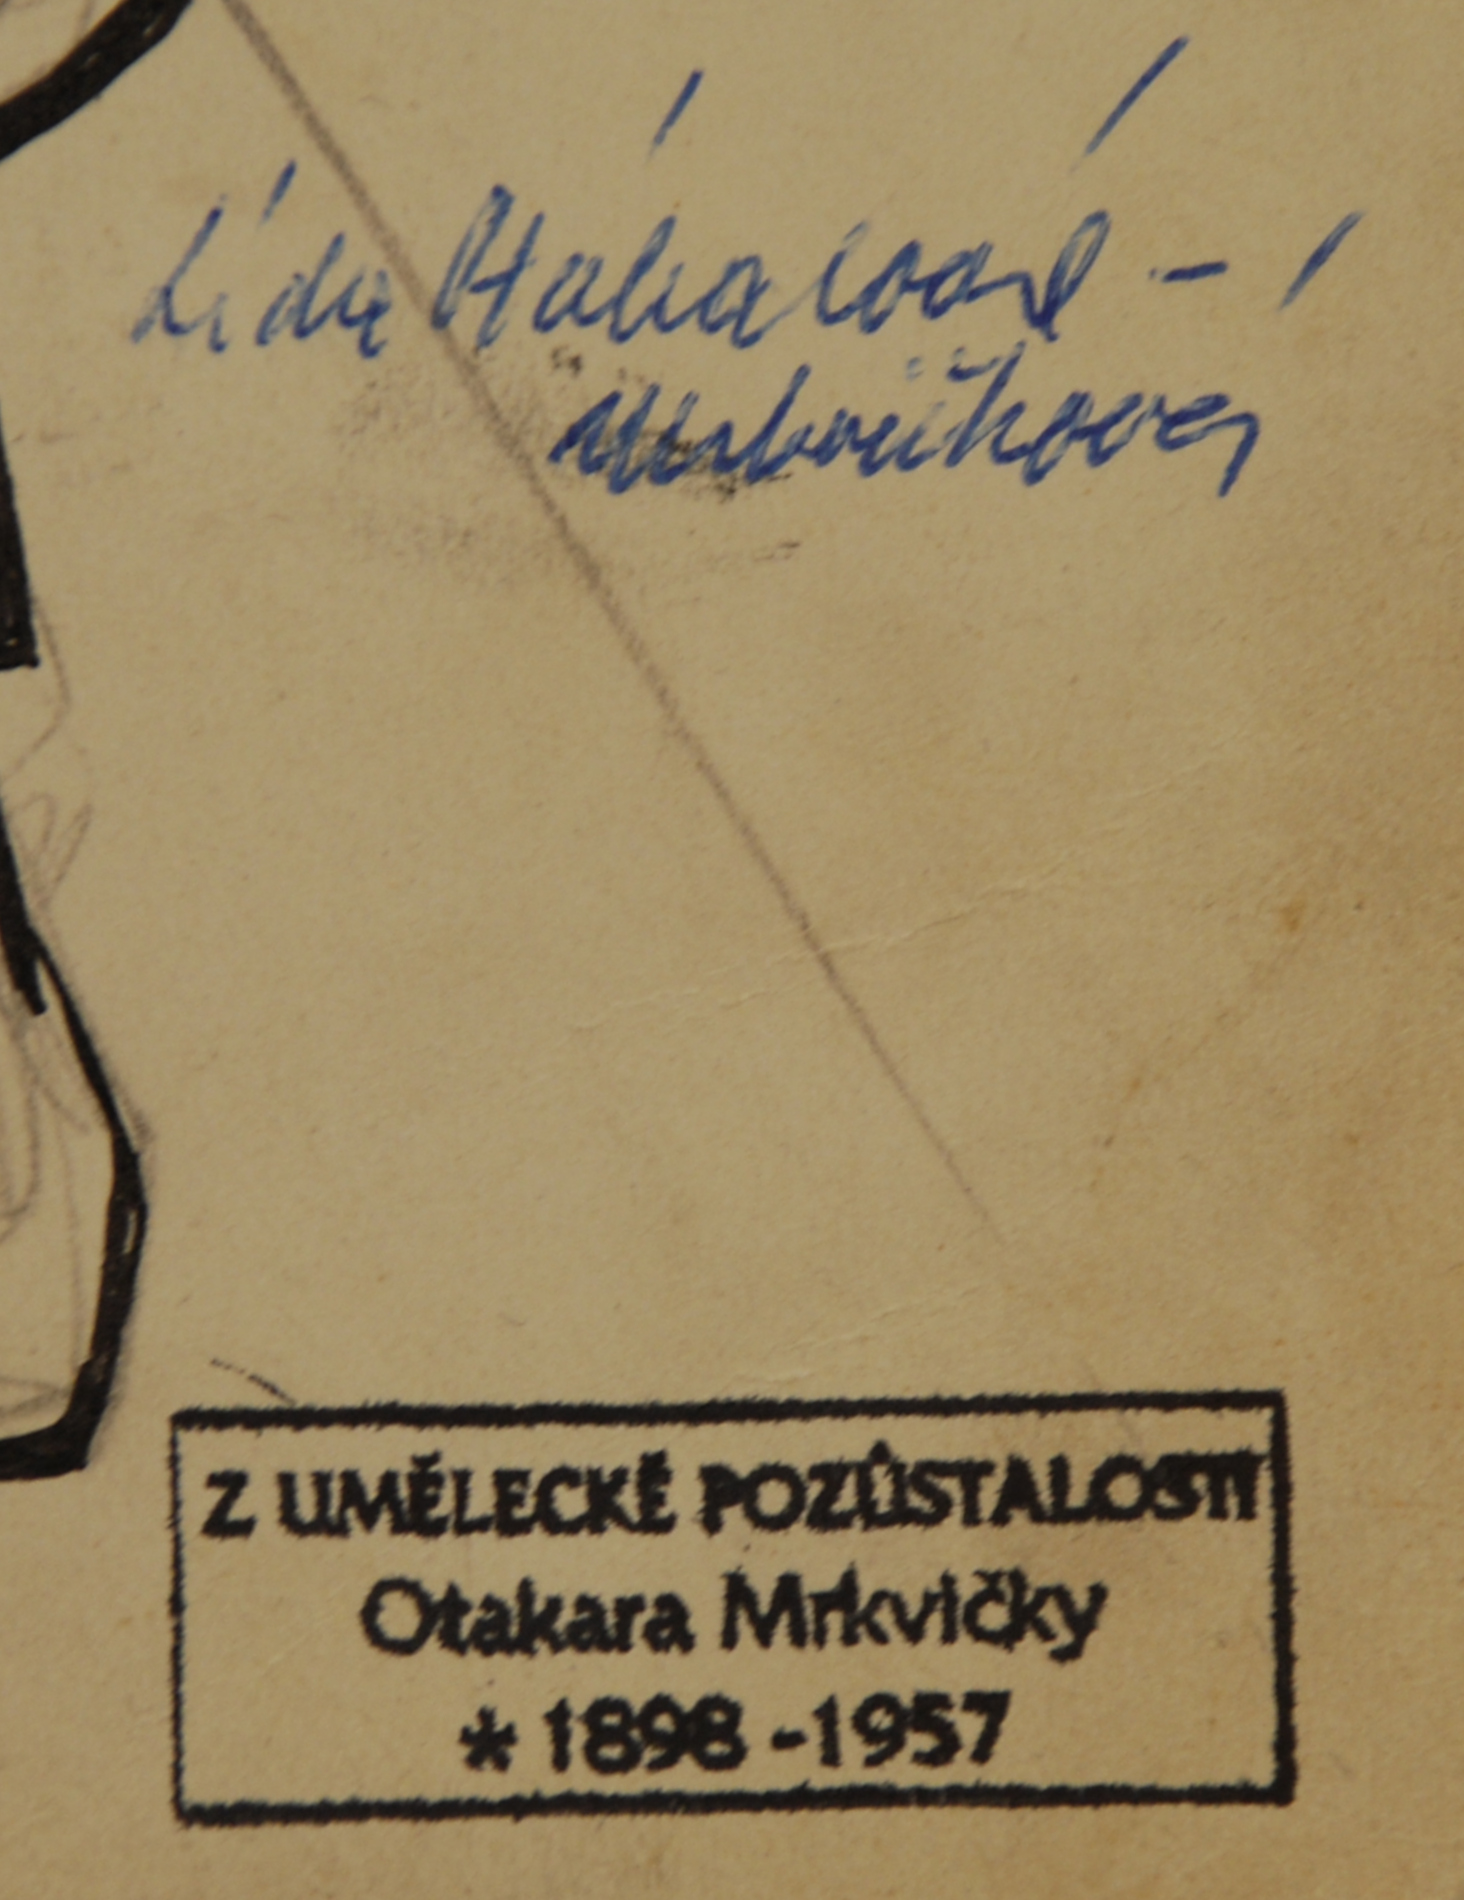 Lída –
Mrkvičková
Z UMĚLECKÉ POZŮSTALOSTI
Otakara Mrkvičky
* 1898 -1957